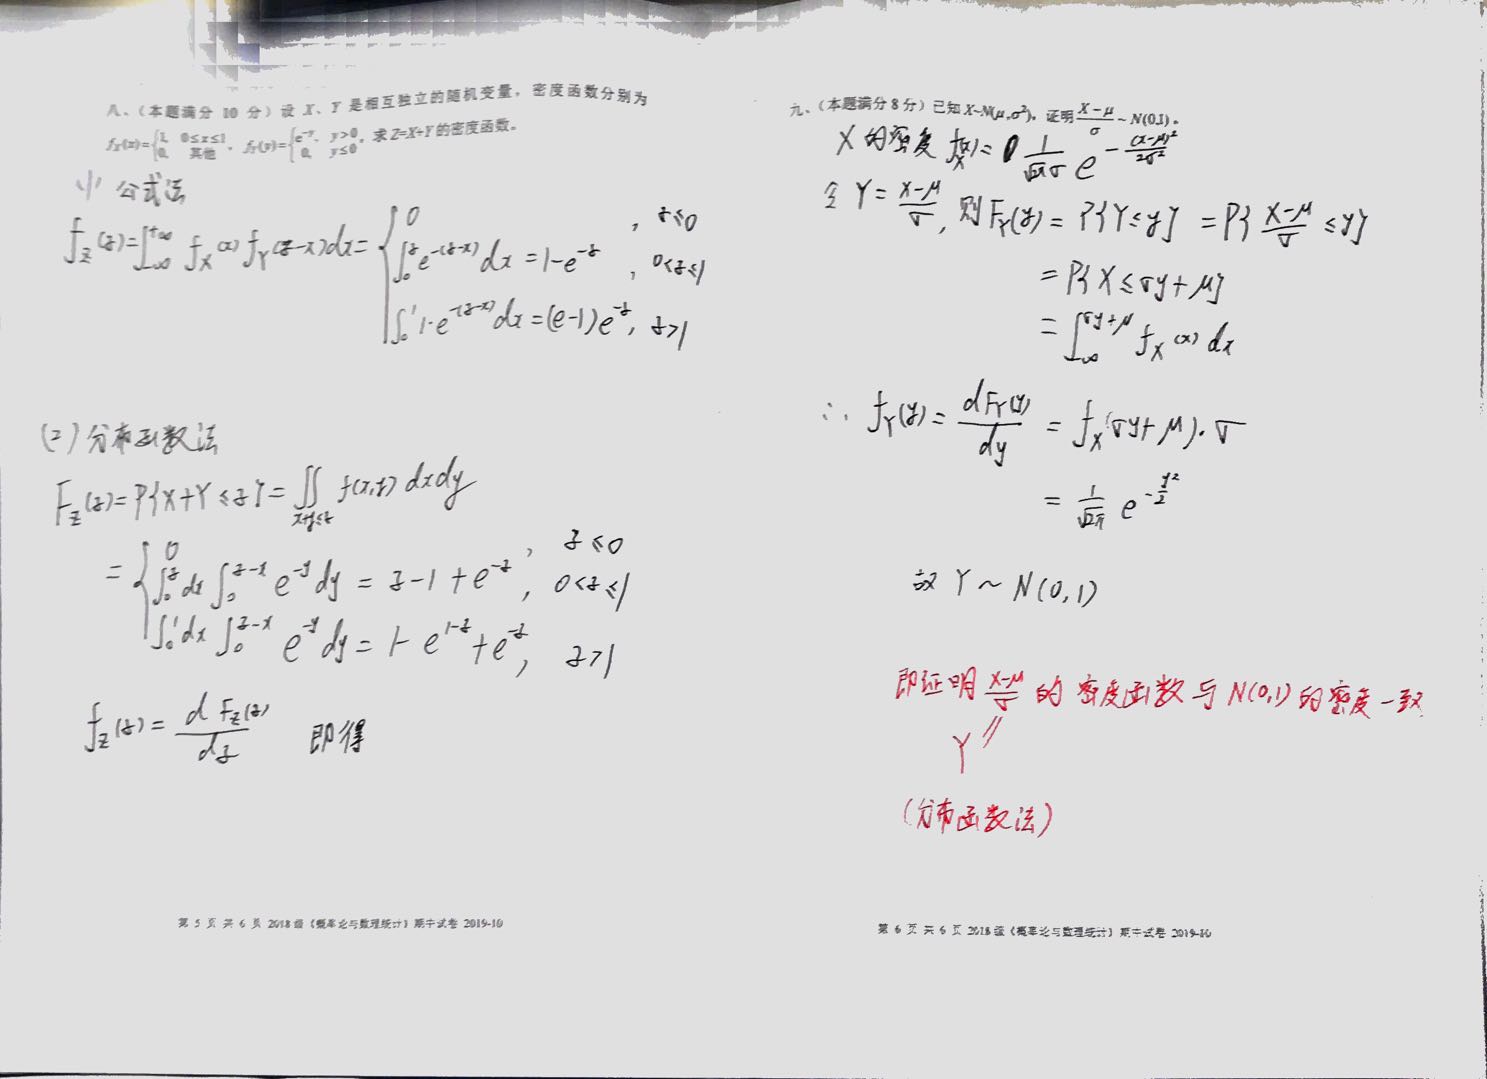 八、(本题满分 10 分) 设 X、Y 是相互独立的随机变量，密度函数分别为
f_X(x)={1, 0≤x≤1; 0, 其他， f_Y(y)={e^{-y}, y>0; 0, y≤0，求 Z=X+Y 的密度函数。
(1) 公式法
f_Z(z)=∫_{-∞}^{+∞} f_X(x) f_Y(z-x)dx= { 0 , z≤0
∫_0^z e^{-(z-x)} dx = 1-e^{-z} , 0<z≤1
∫_0^1 1·e^{-(z-x)} dx = (e-1)e^{-z}, z>1
(2) 分布函数法
F_Z(z)=P{X+Y≤z}=∬_{x+y≤z} f(x,y) dxdy
= { 0 , z≤0
∫_0^z dx ∫_0^{z-x} e^{-y} dy = z-1+e^{-z} , 0<z≤1
∫_0^1 dx ∫_0^{z-x} e^{-y} dy = 1-e^{1-z}+e^{-z} , z>1
f_Z(z) = dF_Z(z)/dz 即得
第 5 页 共 6 页 2018 级《概率论与数理统计》期中试卷 2019-10
九、(本题满分 8 分) 已知 X~N(μ,σ²)，证明 (X-μ)/σ ~ N(0,1)。
X 的密度 f_X(x)= 1/(√2π σ) e^{-(x-μ)²/2σ²}
令 Y = (X-μ)/σ, 则 F_Y(y) = P{Y≤y} = P{(X-μ)/σ ≤ y}
= P{X ≤ σy+μ}
= ∫_{-∞}^{σy+μ} f_X(x) dx
∴ f_Y(y) = dF_Y(y)/dy = f_X(σy+μ)·σ
= 1/√2π e^{-y²/2}
故 Y ~ N(0,1)
即证明 (X-μ)/σ 的密度函数与 N(0,1) 的密度一致
Y //
(分布函数法)
第 6 页 共 6 页 2018 级《概率论与数理统计》期中试卷 2019-10